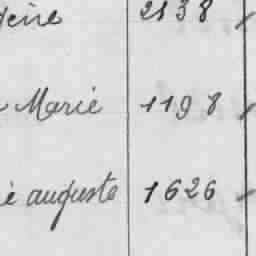 2138
Marie 1198
auguste 1626